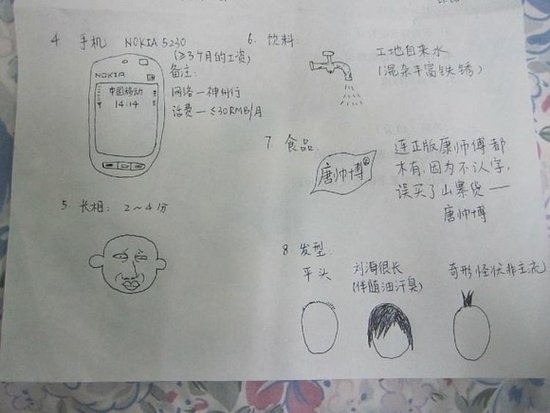 4. 手机 NOKIA 5230
(≥3个月的工资)
备注:
网络—神州行
话费—≤30RMB/月
NOKIA
中国移动
14:14
5. 长相: 2~4分
6. 饮料
工地自来水
(混杂丰富铁锈)
7. 食品:
唐帅博®
连正版康师傅都
木有,因为不认字,
误买了山寨货——
唐帅博
8. 发型
平头
刘海很长
(伴随油汗臭)
奇形怪状非主流